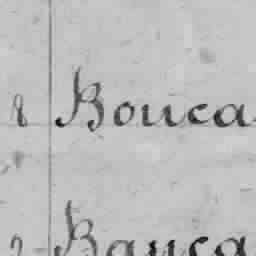 8 Bouca
2 Bauca